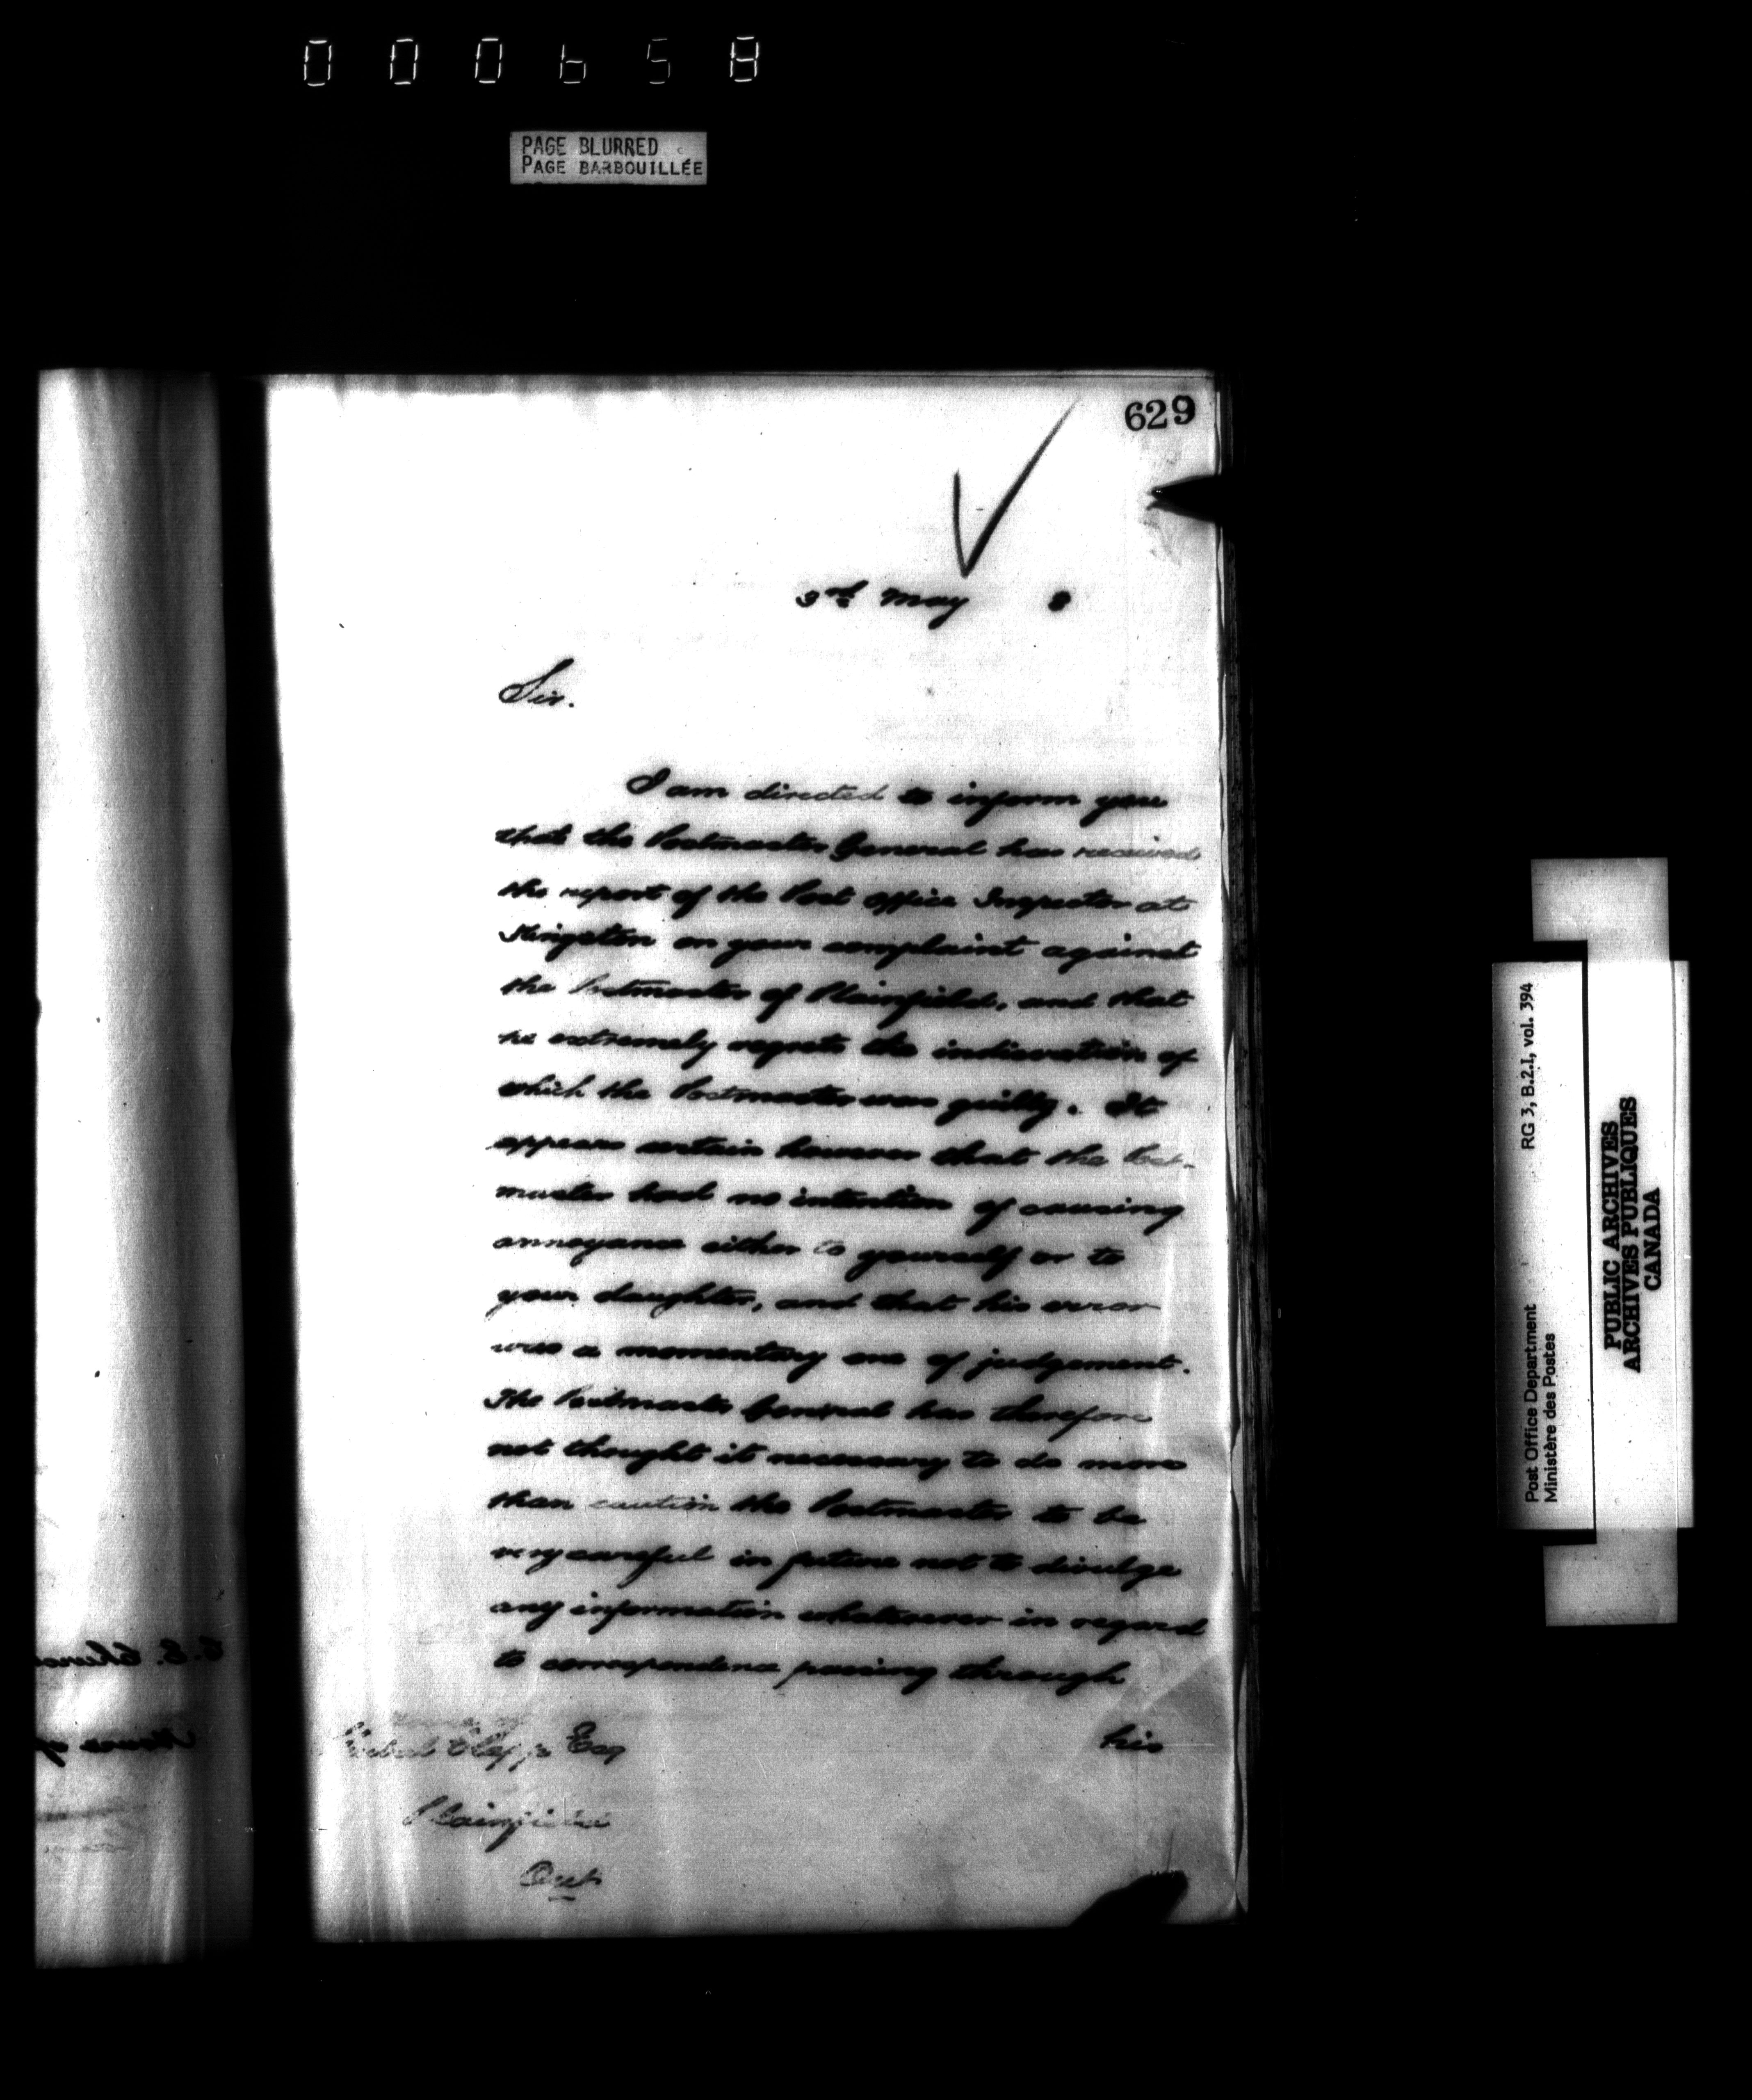 000658
PAGE BLURRED
PAGE BARBOUILLÉE
629
3rd May 8
Sir.
I am directed to inform you
that the Postmaster General has received
the report of the Post Office Inspector at
Kingston on your complaint against
the Postmaster of Plainfield, and that
he extremely regrets the indiscretion of
which the Postmaster was guilty. It
appears certain however that the Post-
master had no intention of causing
annoyance either to yourself or to
your daughter, and that his error
was a momentary one of judgement.
The Postmaster General has therefore
not thought it necessary to do more
than caution the Postmaster to be
very careful in future not to divulge
any information whatsoever in regard
to correspondence passing through
his
Clapp Esq
Plainfield
Ont
Post Office Department
Ministère des Postes
RG 3, B.2.I, vol. 394
PUBLIC ARCHIVES
ARCHIVES PUBLIQUES
CANADA